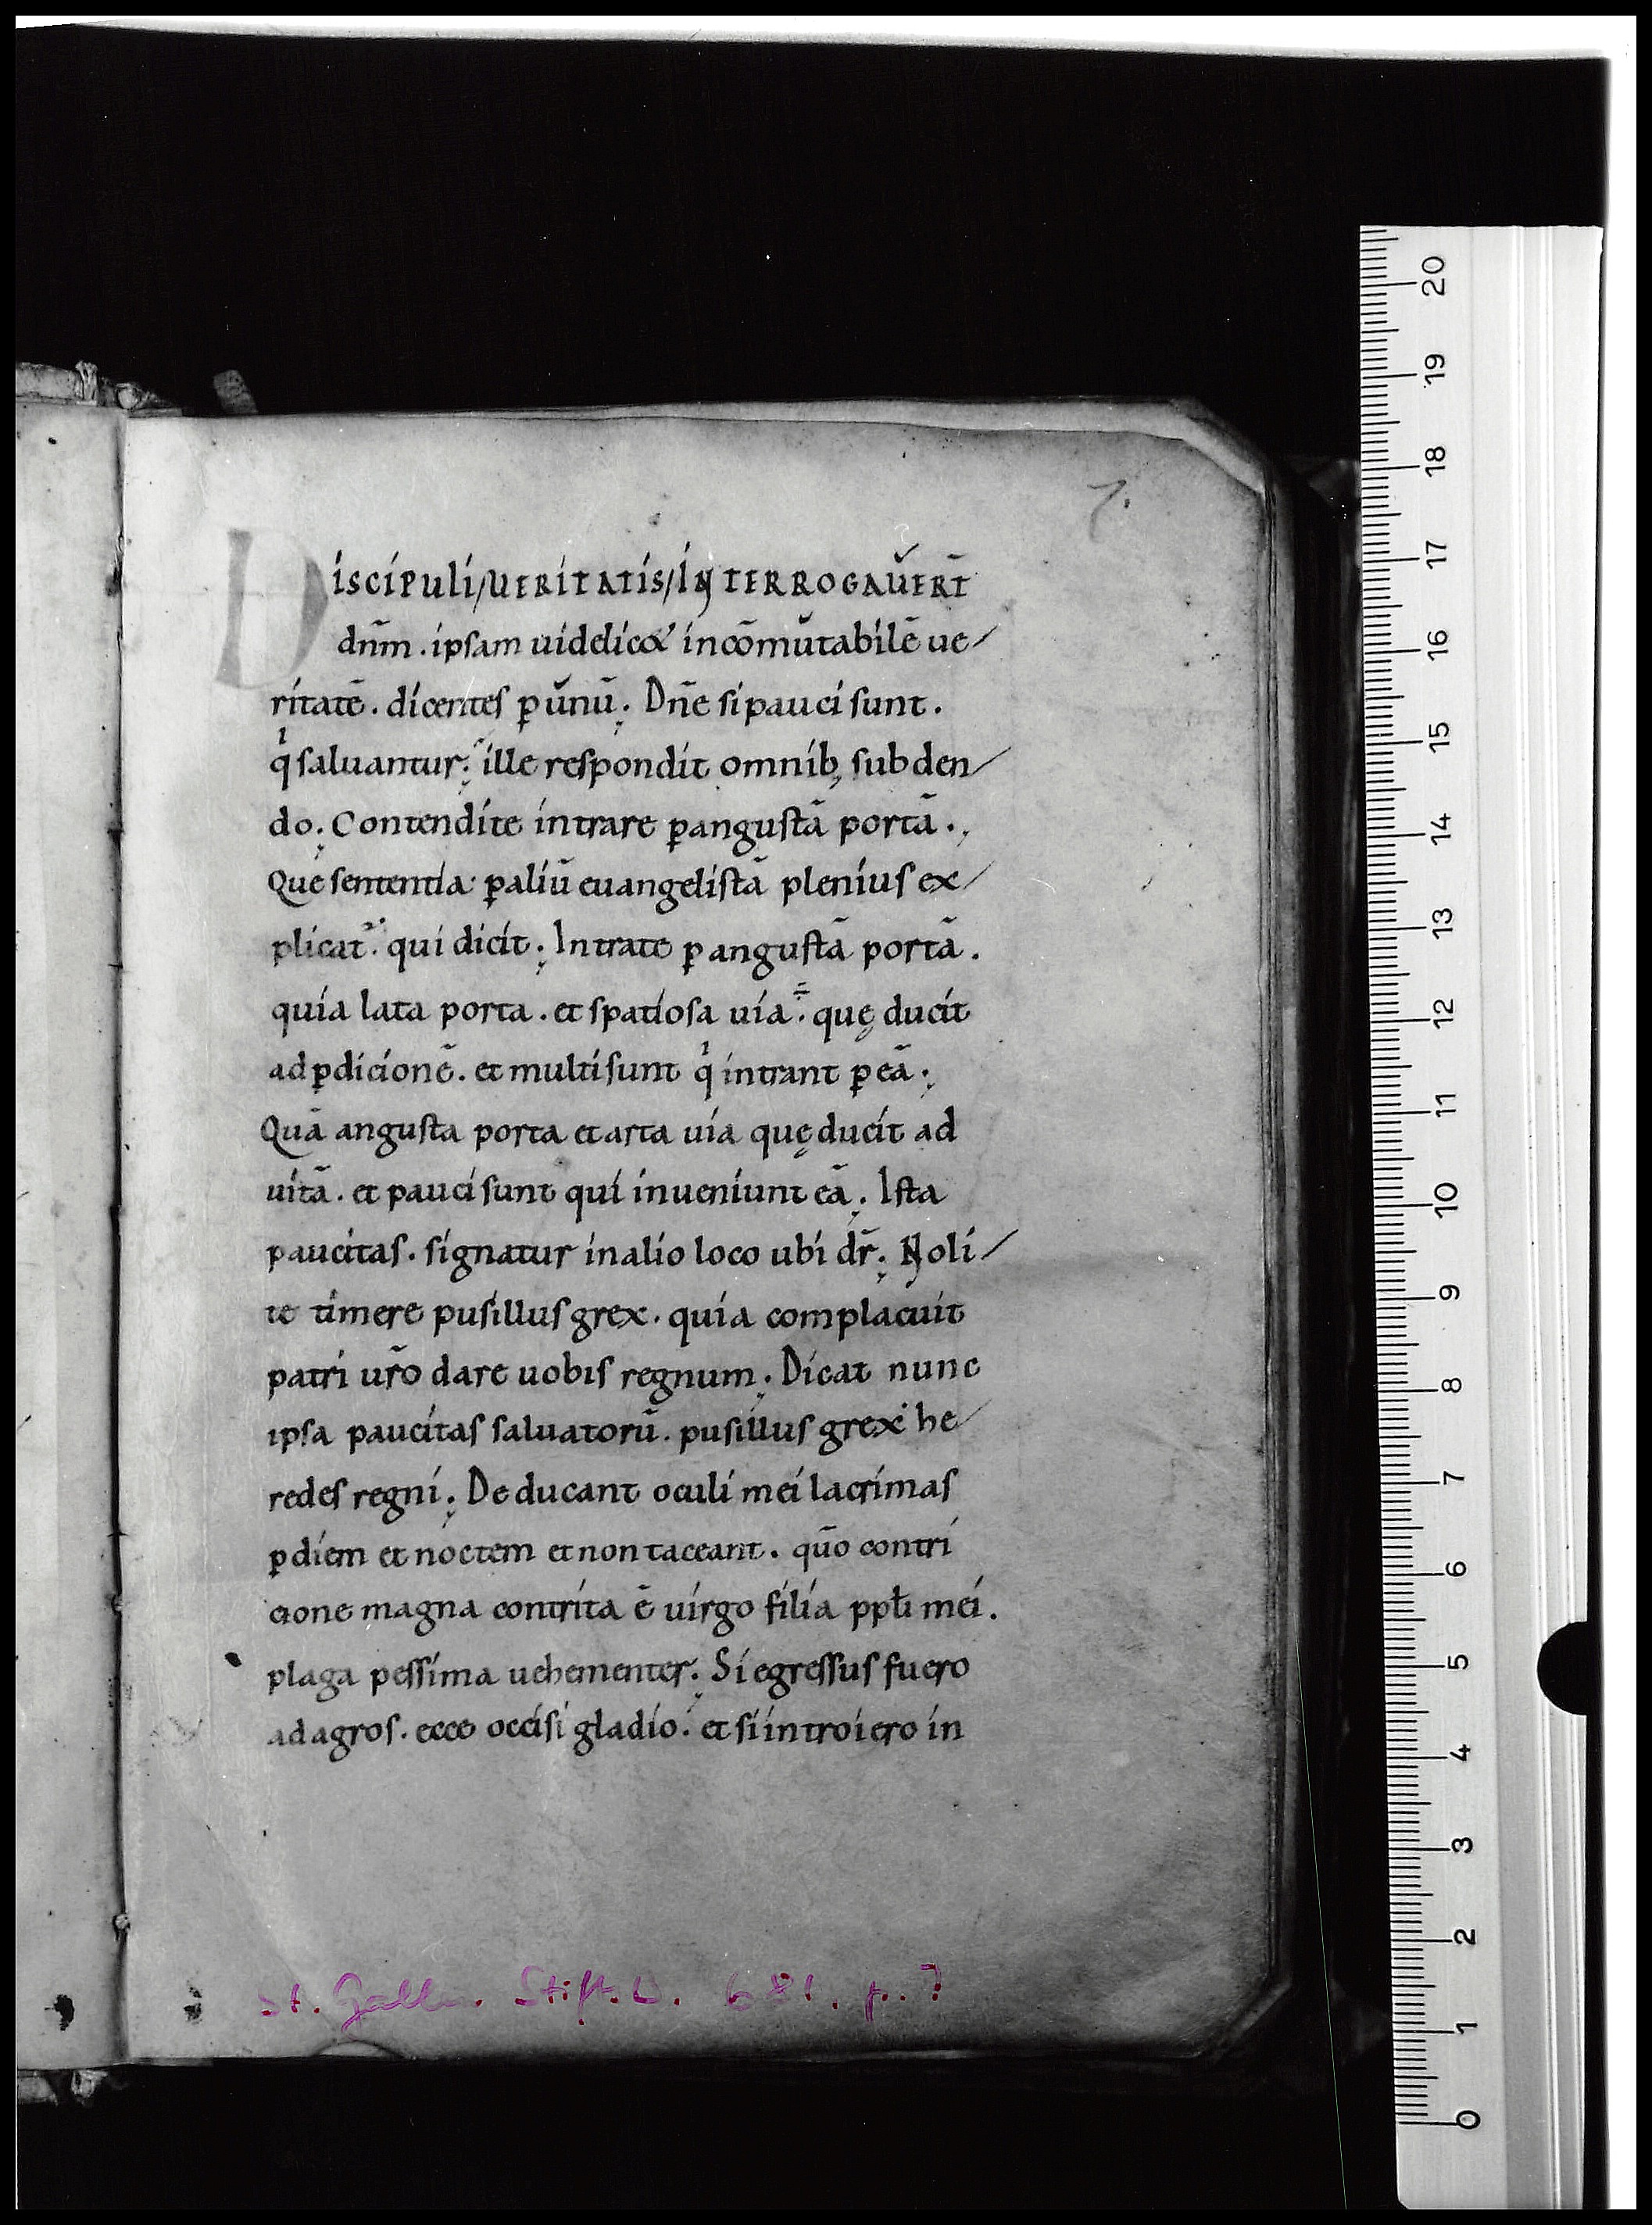 7.
DISCIPULI/VERITATIS/INTERROGAVERT̄
dn̄m. ipsam uidelicet incōmutabilē ue/
ritatē. dicentes ꝑ unū. Dn̄e si pauci sunt.
qͥ saluantur; ille respondit omnib; subden/
do. Contendite intrare ꝑ angustā portā.,
Que sententia ꝑ aliū euangelistā plenius ex/
plicat᷑. qui dicit; Intrate ꝑ angustā portā.
quia lata porta. et spatiosa uia÷. quę ducit
ad ꝑdicionē. et multi sunt qͥ intrant ꝑ eā;
Quā angusta porta et arta uia quę ducit ad
uitā. et pauci sunt qui inueniunt eā; Ista
paucitas. signatur in alio loco ubi dr̄; Noli/
te timere pusillus grex. quia complacuit
patri ur̄o dare uobis regnum; Dicat nunc
ipsa paucitas saluatorū. pusillus grex he/
redes regni; Deducant oculi mei lacrimas
ꝑ diem et noctem et non taceant. qūo contri
cione magna contrita ē uirgo filia ppłi mei.
plaga pessima uehementer; Si egressus fuero
ad agros. ecce occisi gladio. et si introiero in
St. Gallen. Stift.b. 681. p. 7
20
19
18
17
16
15
14
13
12
11
10
9
8
7
6
5
4
3
2
1
0